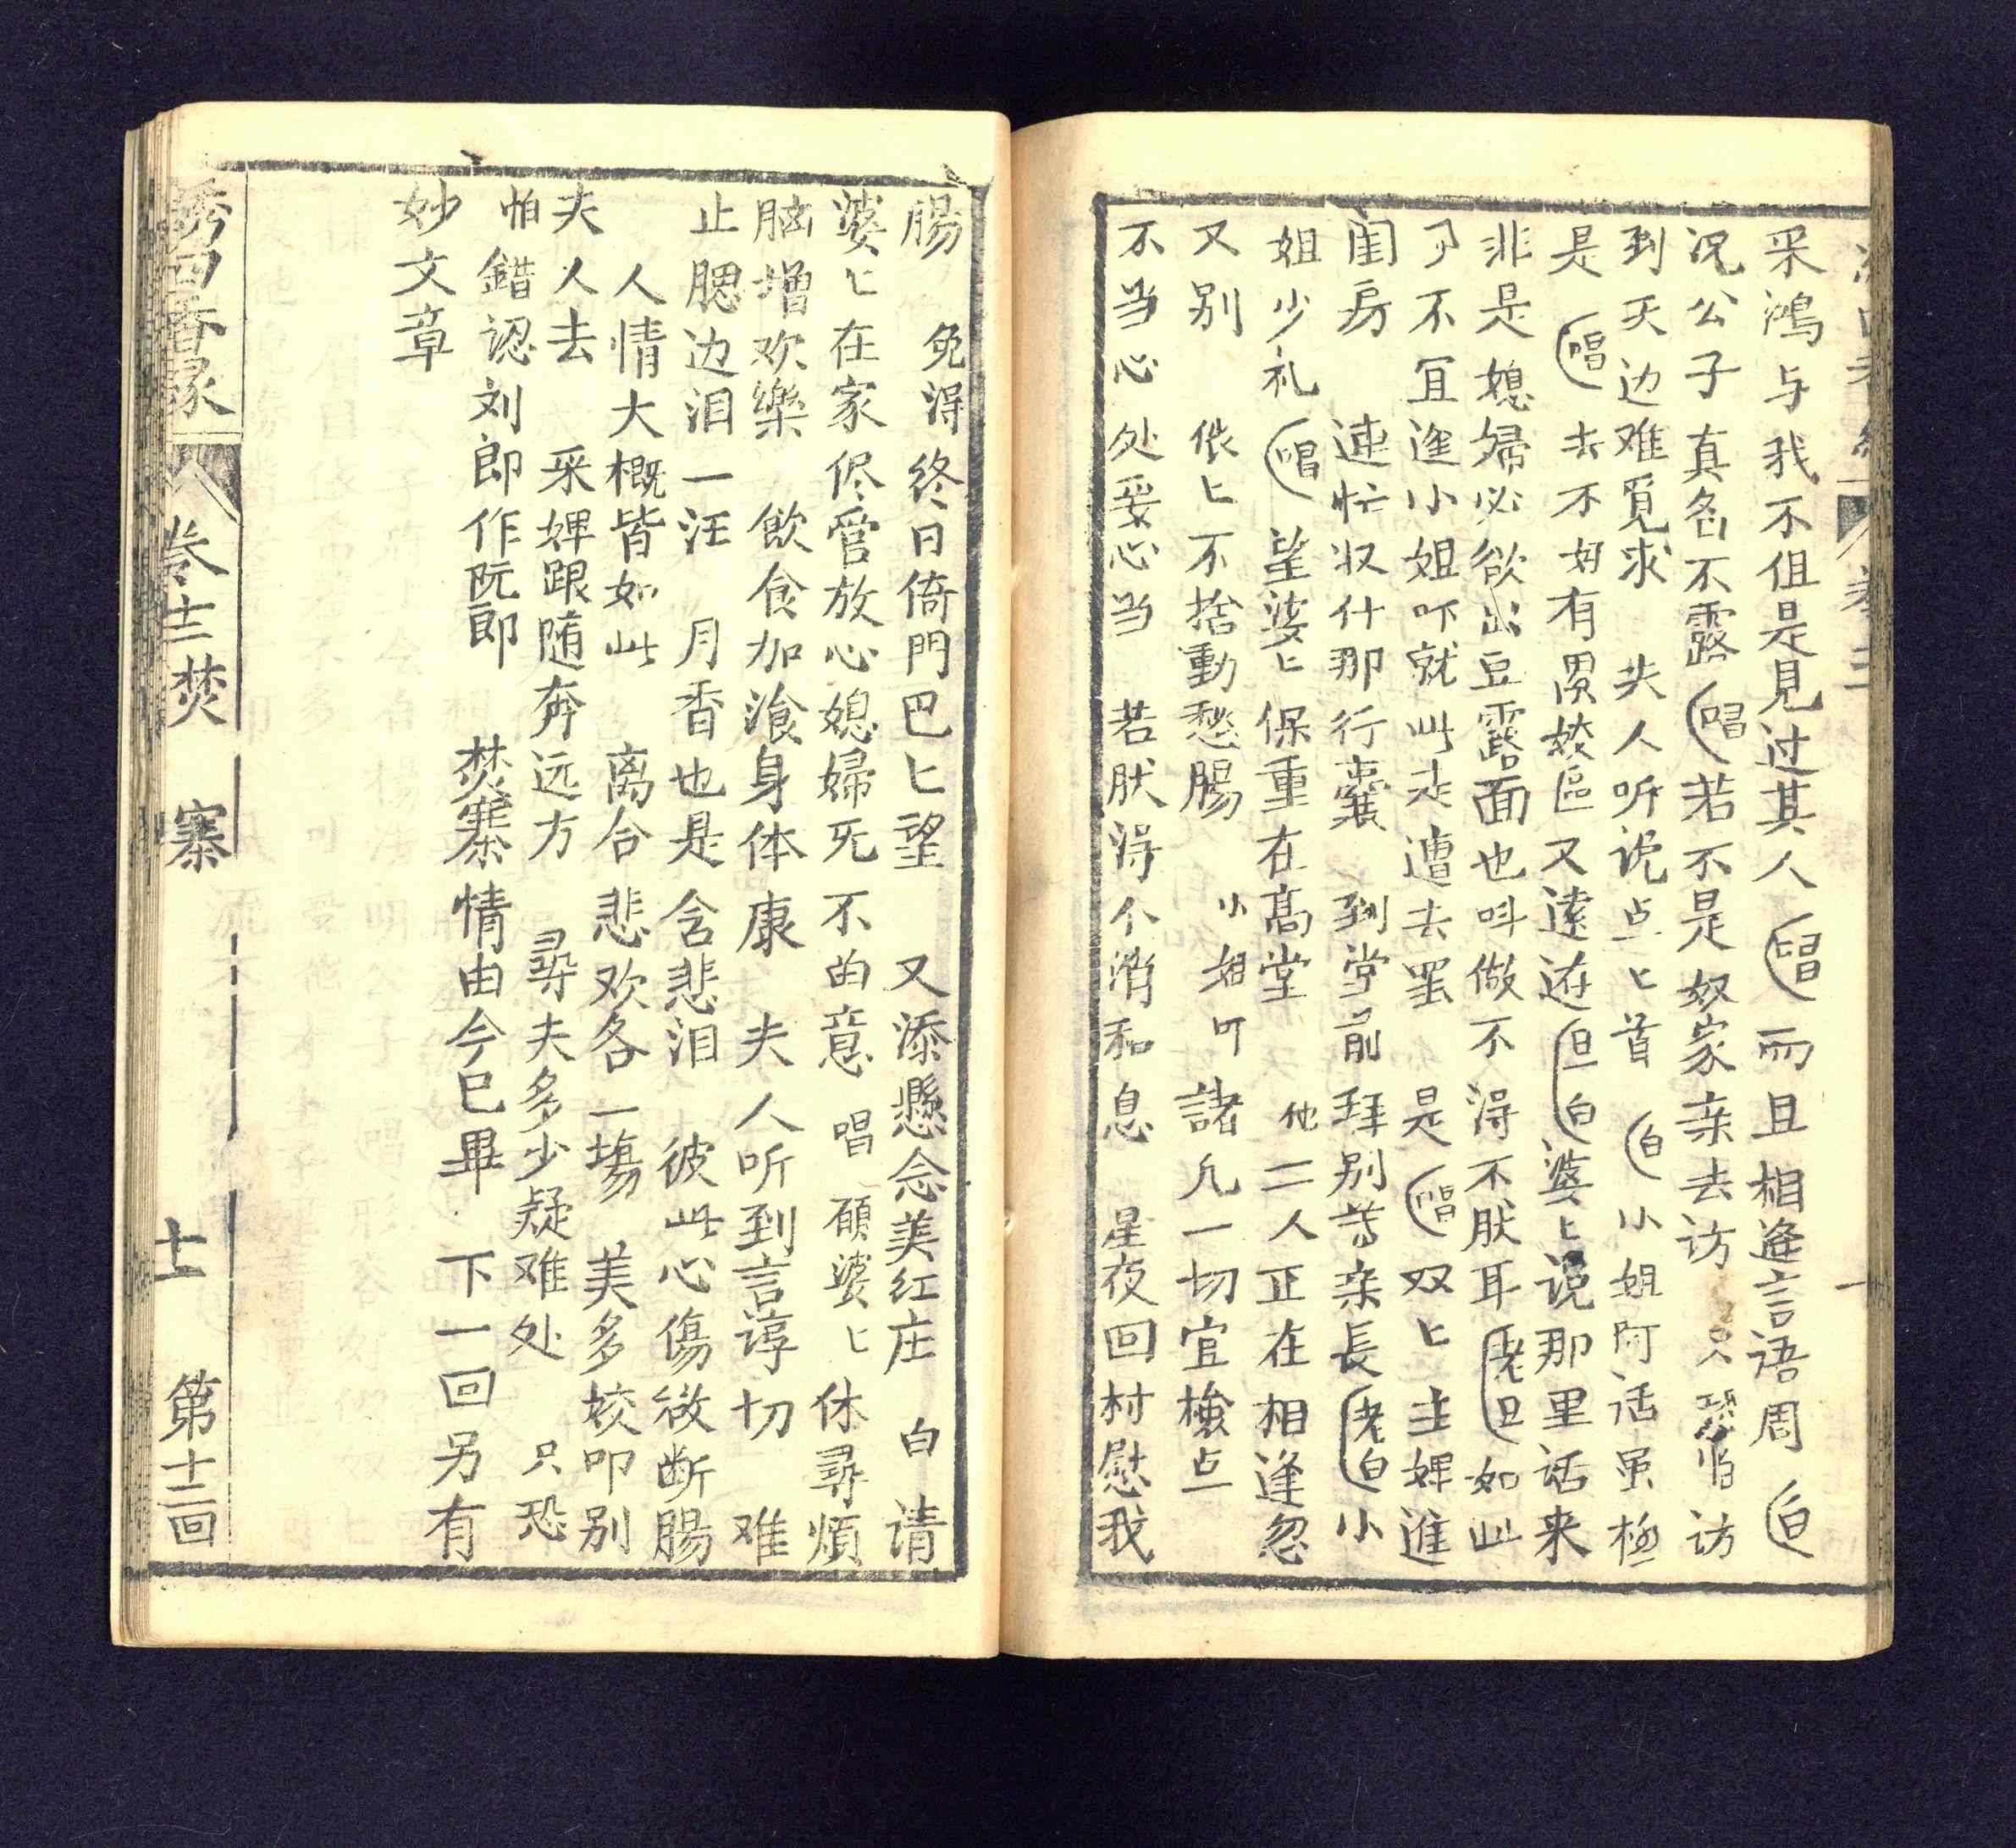 采鴻与我不但是見过其人 唱 而且相逢言語周 白
况公子真名不露 唱 若不是奴家亲去访 只恐怕访
到天边难覓求 夫人听说点匕首 白 小姐阿话虽極
是 唱 去不好有累娘區又遠 旦白 婆匕说那里话来
非是媳婦必欲出豆露面也叫做不得不肰耳 老旦 如此
了不宜迯小姐吓就此走遭去罢 是 唱 双匕主婢進
闺房 連忙收什那行囊 到堂前拜别尊亲長 老白 小
姐少礼 唱 望婆匕保重在髙堂 他二人正在相逢忽
又别 依匕不捨動愁腸 小姐吓諸凡一切宜檢点
不当心处要心当 若肰淂个消和息 星夜回村慰我
腸 免淂终日倚門巴匕望 又添懸念美红庄 白 请
婆匕在家侭管放心媳婦死不的意 唱 碩婆匕休尋煩
脑增欢樂 飲食加飡身体康 夫人听到言諄切 难
止腮边泪一汪 月香也是含悲泪 彼此心傷欲断腸
人情大概皆如此 离合悲欢各一塲 美多姣叩别
夫人去 采婢跟随奔远方 尋夫多少疑难处 只恐
怕錯认刘郎作阮郎 焚寨情由今已畢 下一回另有
妙文章
綉四香缘 卷十二 焚寨 十一 第十二回